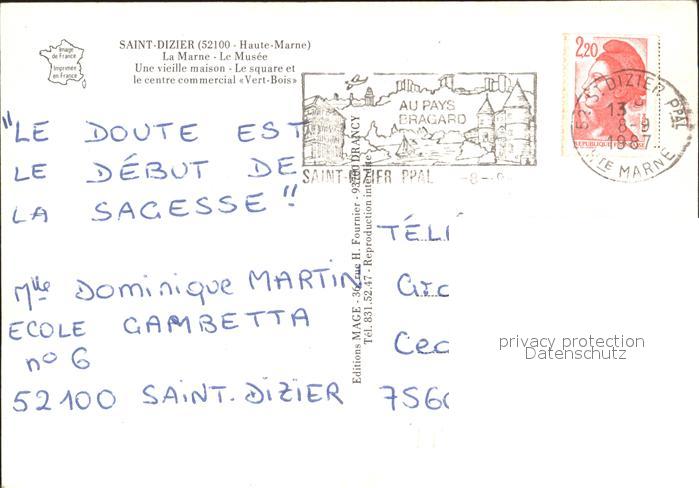 Image
de France
Imprimée
en France
SAINT-DIZIER (52100 - Haute-Marne)
La Marne - Le Musée
Une vieille maison - Le square et
le centre commercial «Vert-Bois»
2,20
REPUBLIQUE FRANÇAISE
52 ST DIZIER PPAL
13
8-9
1987
HTE MARNE
AU PAYS
BRAGARD
SAINT-DIZIER PPAL -8--9
"LE DOUTE EST
LE DÉBUT DE
LA SAGESSE"
Mlle Dominique MARTIN
ECOLE GAMBETTA
n° 6
52100 SAINT.DIZIER
Editions MAGE - 36, rue H. Fournier - 93700 DRANCY
Tél. 831.52.47 - Reproduction interdite
TÉLÉ
Geo
Cede
7560
privacy protection
Datenschutz